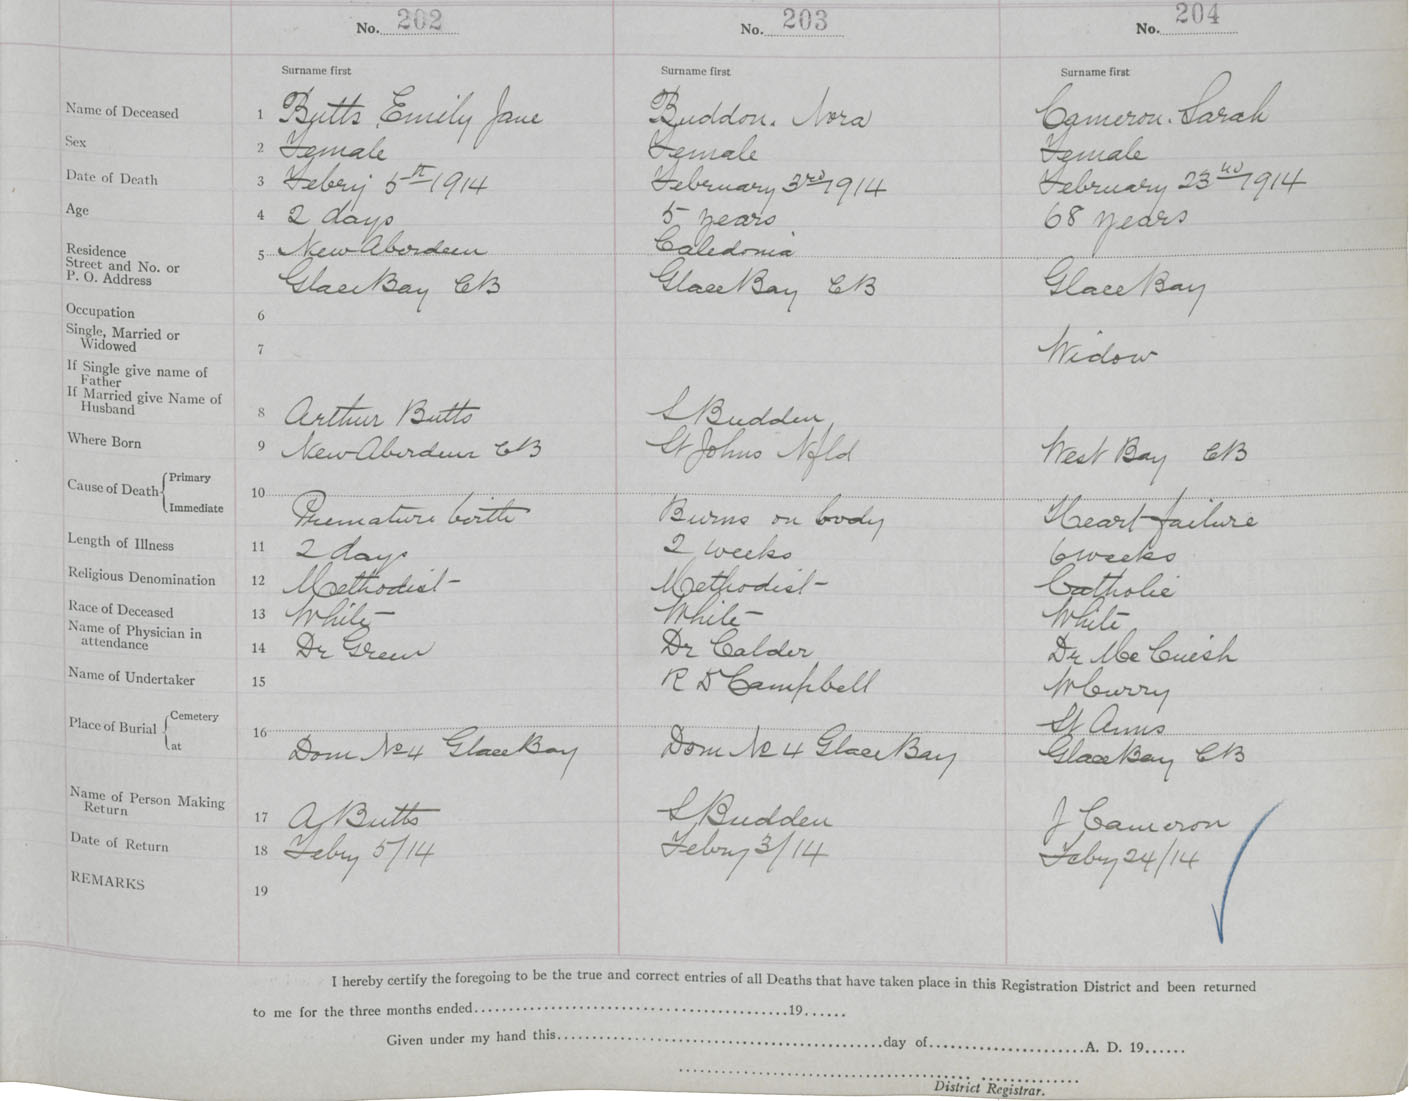 No. 202 No. 203 No. 204
Surname first Surname first Surname first
Name of Deceased 1 Butts, Emily Jane Buddon. Nora Cameron. Sarah
Sex 2 Female Female Female
Date of Death 3 Febry 5th 1914 February 3rd 1914 February 23rd 1914
Age 4 2 days 5 years 68 years
Residence 5 New Aberdeen Caledonia
Street and No. or
P. O. Address Glace Bay CB Glace Bay CB Glace Bay
Occupation 6
Single, Married or
Widowed 7 Widow
If Single give name of
Father
If Married give Name of
Husband 8 Arthur Butts S Budden
Where Born 9 New Aberdeen CB St Johns Nfld West Bay CB
Cause of Death { Primary
10
Immediate Premature birth Burns on body Heart failure
Length of Illness 11 2 days 2 weeks 6 weeks
Religious Denomination 12 Methodist Methodist Catholic
Race of Deceased 13 White White White
Name of Physician in
attendance 14 Dr Green Dr Calder Dr Mc Cuish
Name of Undertaker 15 R D Campbell W Curry
Place of Burial { Cemetery 16 St Anns
at Dom No 4 Glace Bay Dom No 4 Glace Bay Glace Bay CB
Name of Person Making
Return 17 A Butts S Budden J Cameron
Date of Return 18 Febry 5/14 Febry 3/14 Febry 24/14
REMARKS 19
I hereby certify the foregoing to be the true and correct entries of all Deaths that have taken place in this Registration District and been returned
to me for the three months ended........................................19......
Given under my hand this..........................................day of....................A. D. 19......
District Registrar.